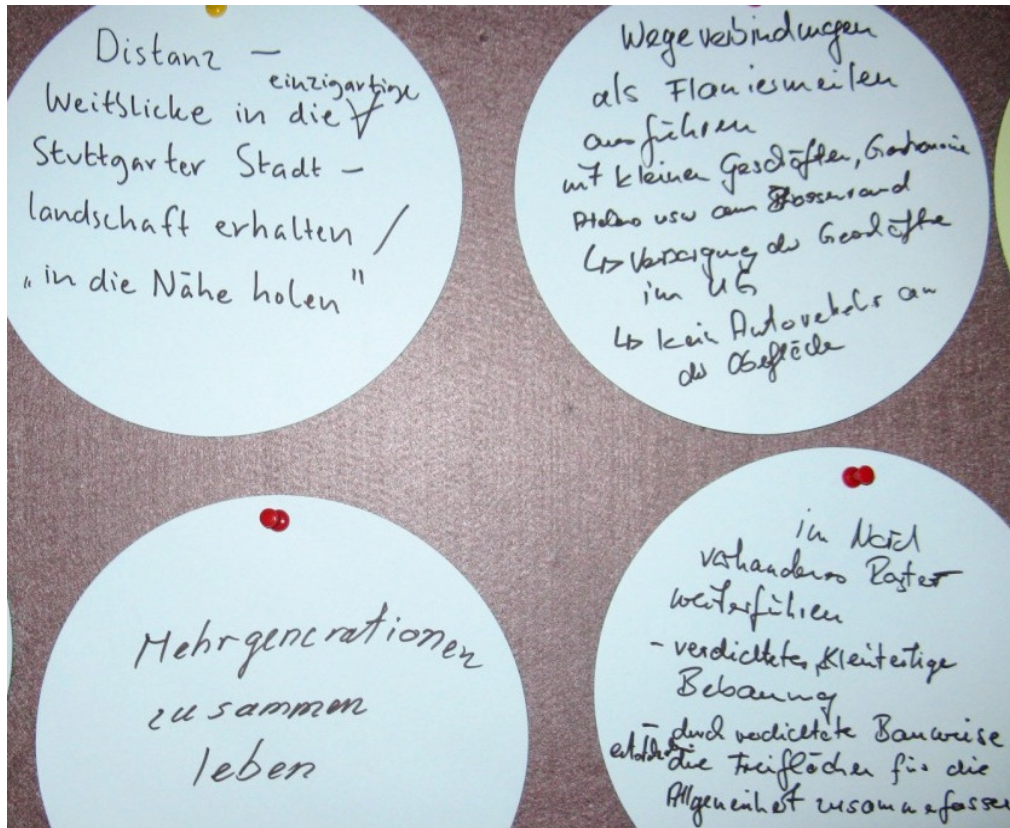 Distanz –
Weitblicke in die einzigartige
Stuttgarter Stadt –
landschaft erhalten /
„in die Nähe holen"
Wegeverbindungen
als Flaniermeilen
ausführen
mit kleinen Geschäften, Gastronomie
Ateliers usw am
↳ Versorgung der Geschäfte
im UG
↳ kein Autoverkehr an
der Oberfläche
Mehrgenerationen
zusammen
leben
im Nord
vorhandenes Raster
weiterführen
- verdichtete, kleinteilige
Bebauung
- durch verdichtete Bauweise
die Freiflächen für die
Allgemeinheit zusammenfassen